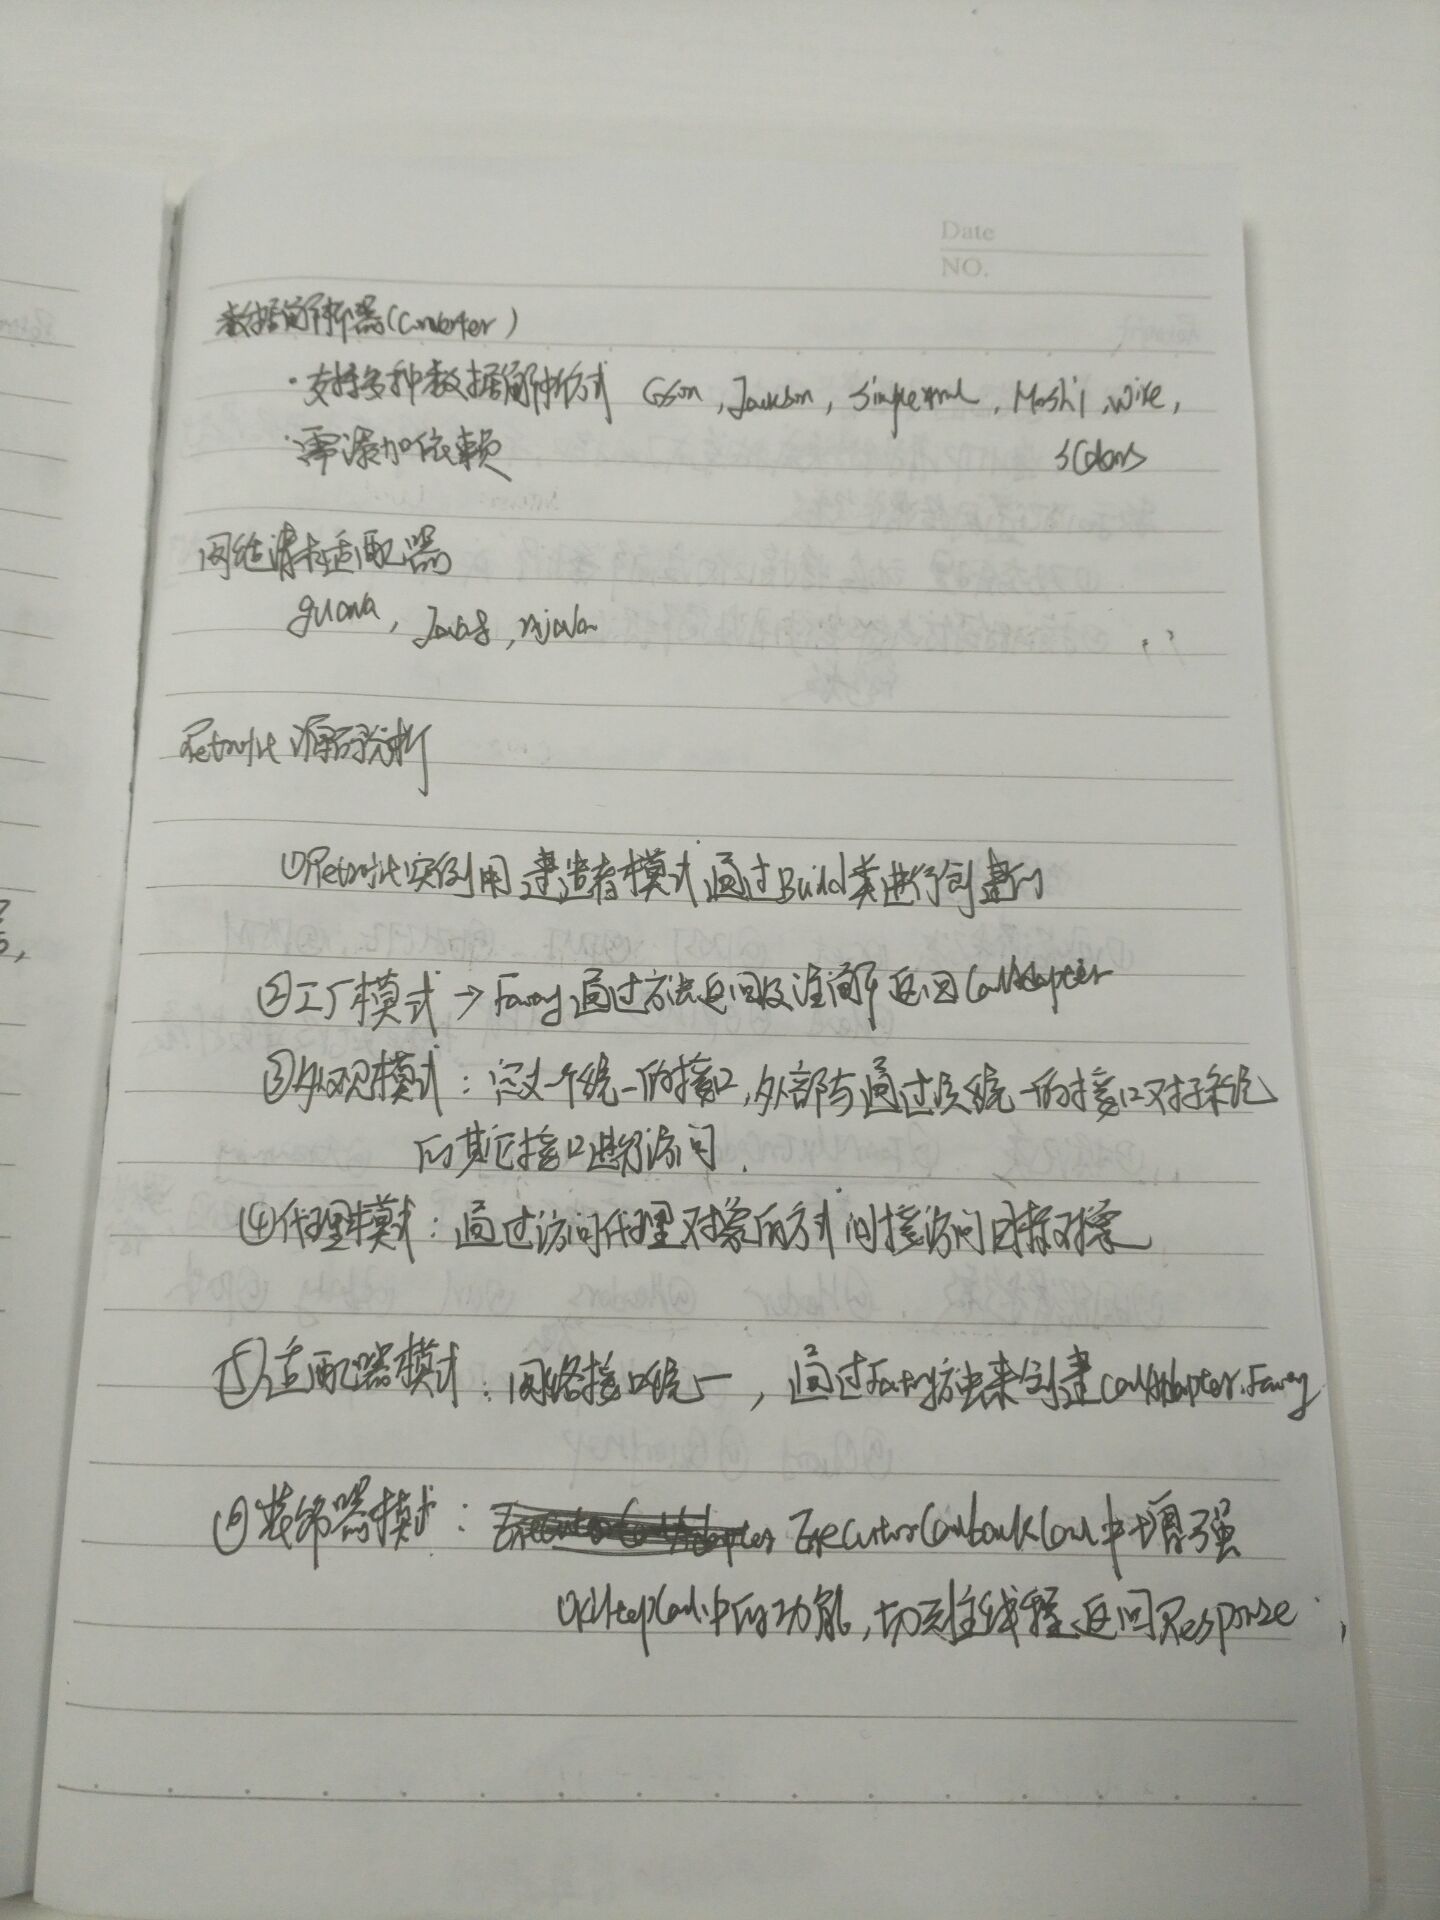 Date
NO.
数据解析器(Converter)
·支持多种数据解析方式 Gson, Jackson, Simplexml, Moshi, Wire,
·需添加依赖 Scalars
网络请求适配器
guava, Java8, rxjava
Retrofit 源码分析
①Retrofit实例用建造者模式通过Build类进行创建的
②工厂模式→Factory通过方法返回及注解返回CallAdapter
③外观模式:定义一个统一的接口,外部与通过该统一的接口对子系统
的其它接口进行访问.
④代理模式:通过访问代理对象的方式间接访问目标对象
⑤适配器模式:网络接口统一,通过Factory方法来创建CallAdapter.Factory
⑥装饰器模式: ExecutorCallbackCall中增强
OkHttpCall中的功能,切到主线程返回Response